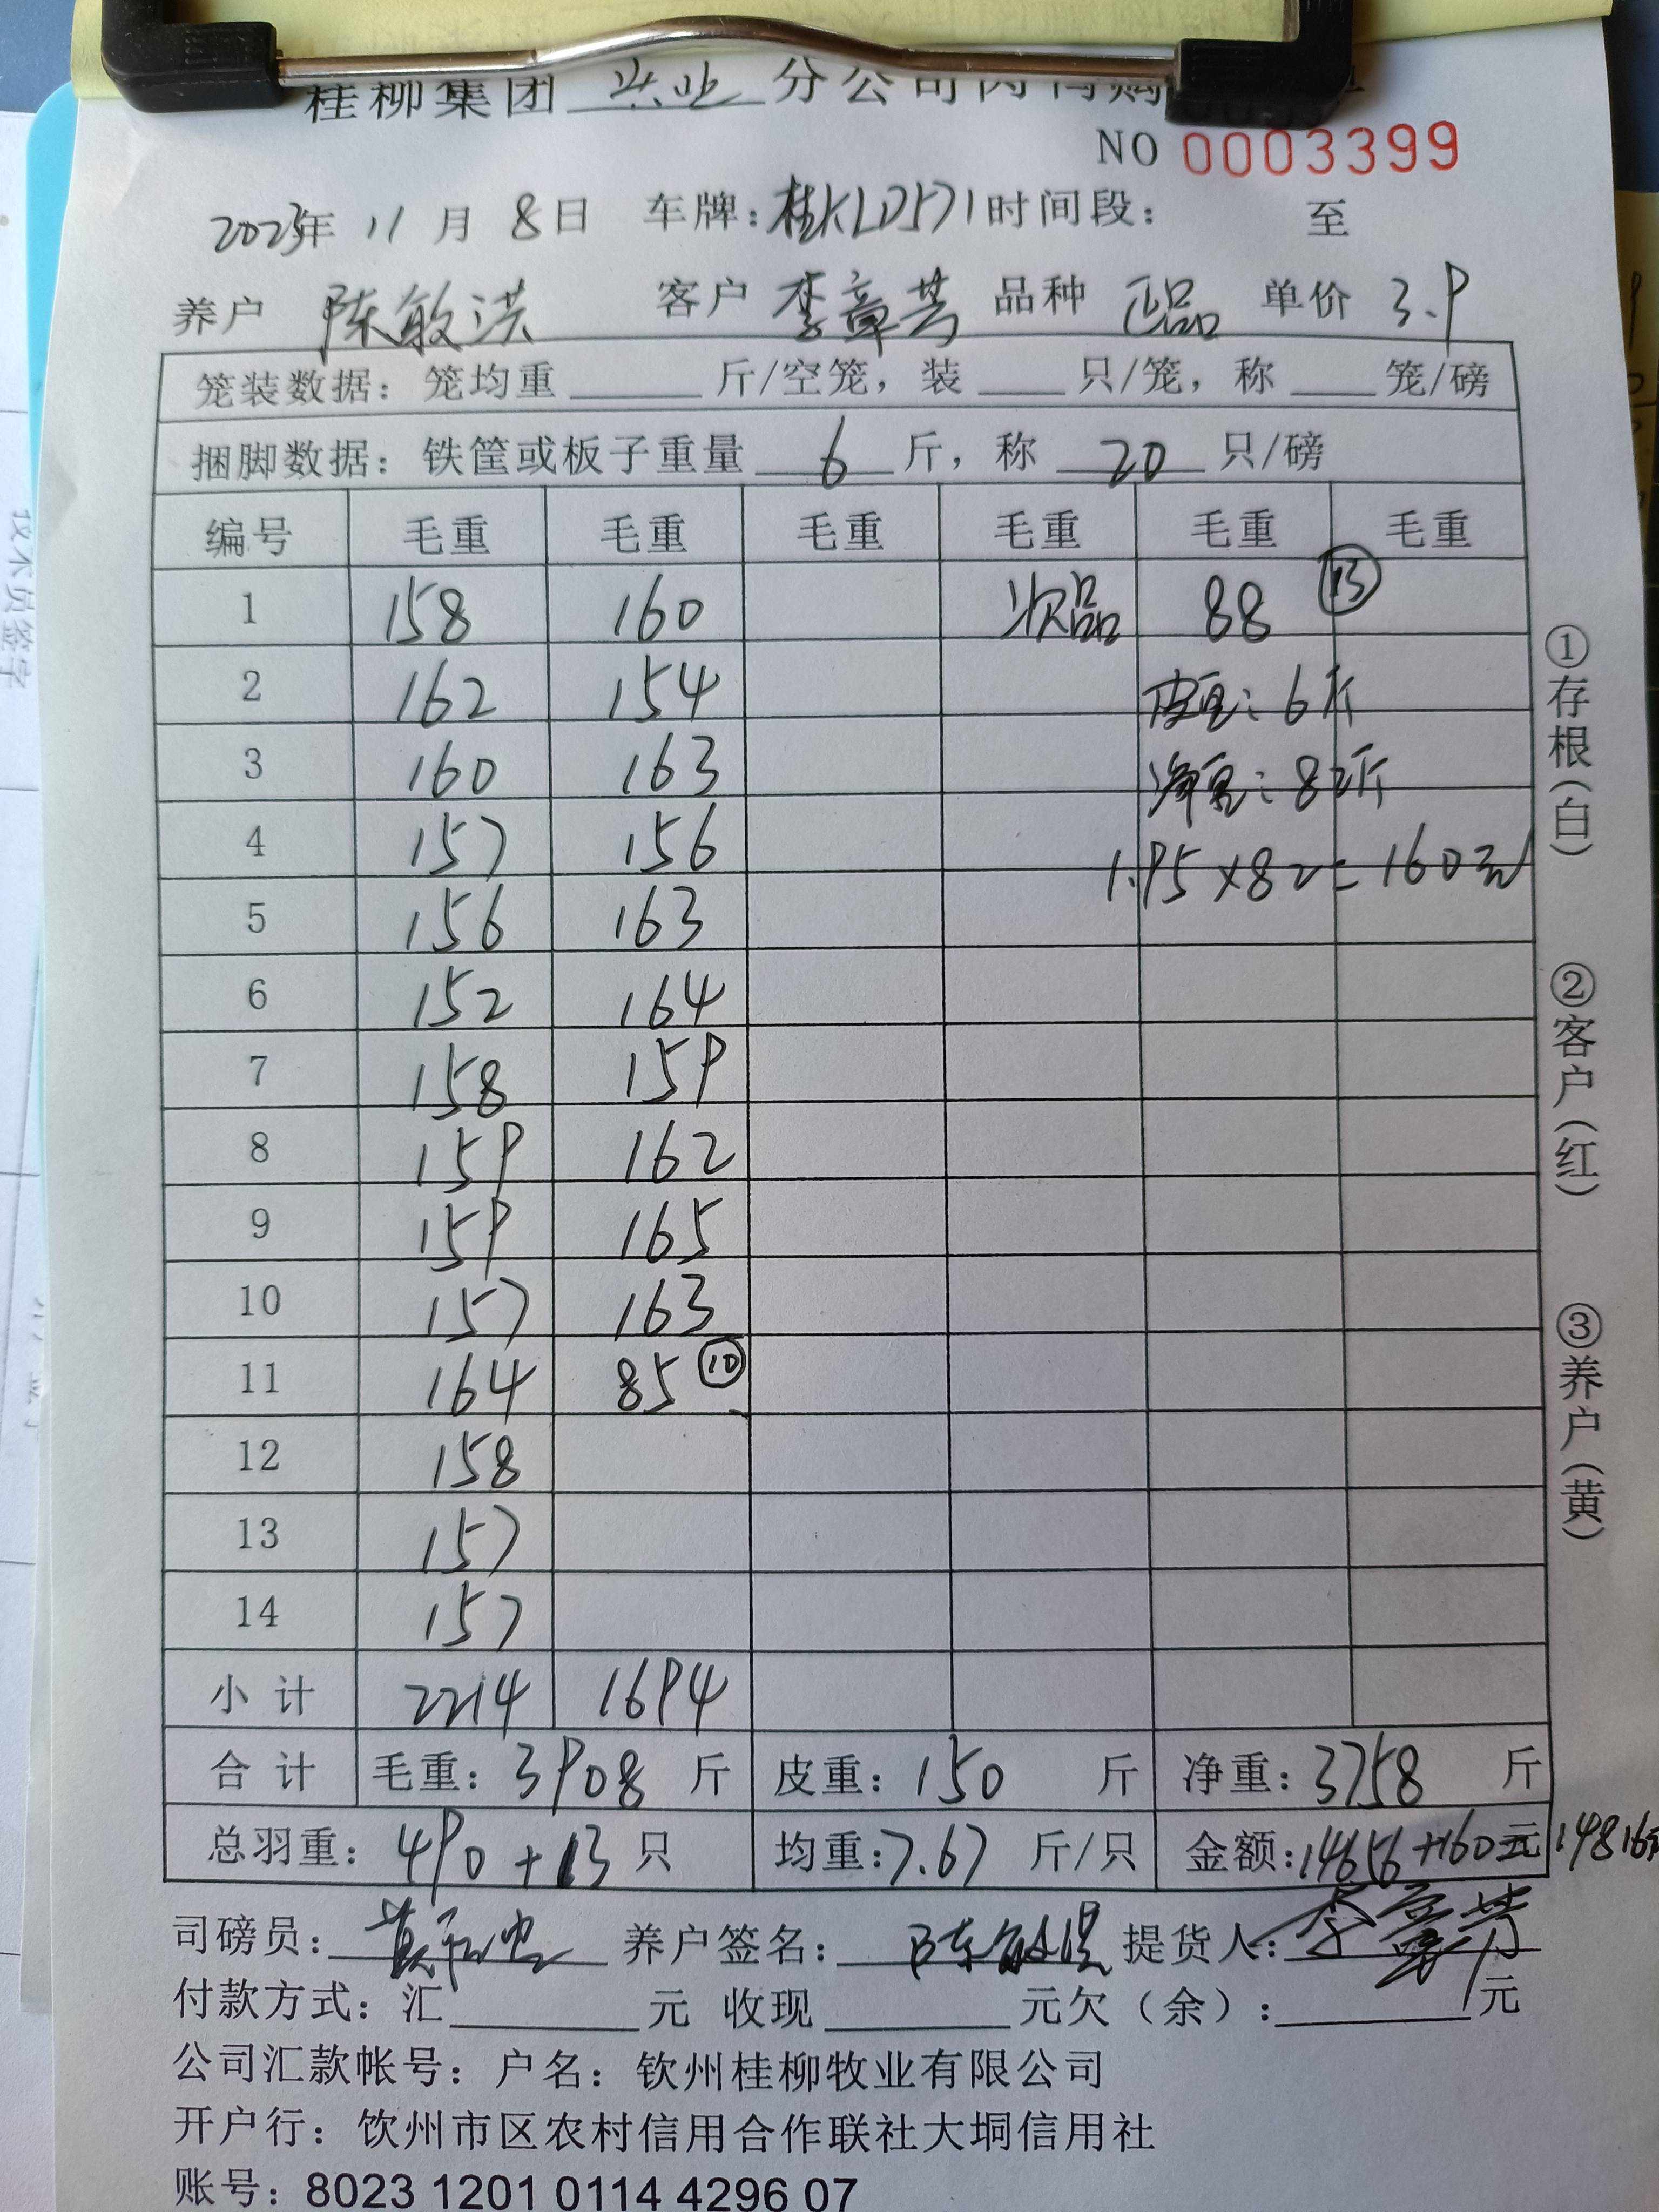 桂柳集团 兴业 分公司肉鸭购
NO 0003399
2023年 11 月 8日 车牌：桂KLD571 时间段： 至
养户 陈敏洪 客户 李章芳 品种 正品 单价 3.9
笼装数据：笼均重 斤/空笼，装 只/笼，称 笼/磅
捆脚数据：铁筐或板子重量 6 斤，称 20 只/磅
编号 毛重 毛重 毛重 毛重 毛重 毛重
1 158 160 次品 88 ⑬
2 162 154 皮重：6斤
3 160 163 净重：82斤
4 157 156 1.95×82=160元
5 156 163
6 152 164
7 158 159
8 159 162
9 159 165
10 157 163
11 164 85 ⑩
12 158
13 157
14 157
小计 2214 1694
合计 毛重：3908 斤 皮重：150 斤 净重：3758 斤
总羽重：490+13 只 均重：7.67 斤/只 金额：14656+160元 14816元
司磅员： 养户签名：陈敏洪 提货人：李章芳
付款方式：汇 元 收现 元欠（余）： 元
公司汇款帐号：户名：钦州桂柳牧业有限公司
开户行：钦州市区农村信用合作联社大垌信用社
账号：8023 1201 0114 4296 07
①存根（白）
②客户（红）
③养户（黄）
技术员签字